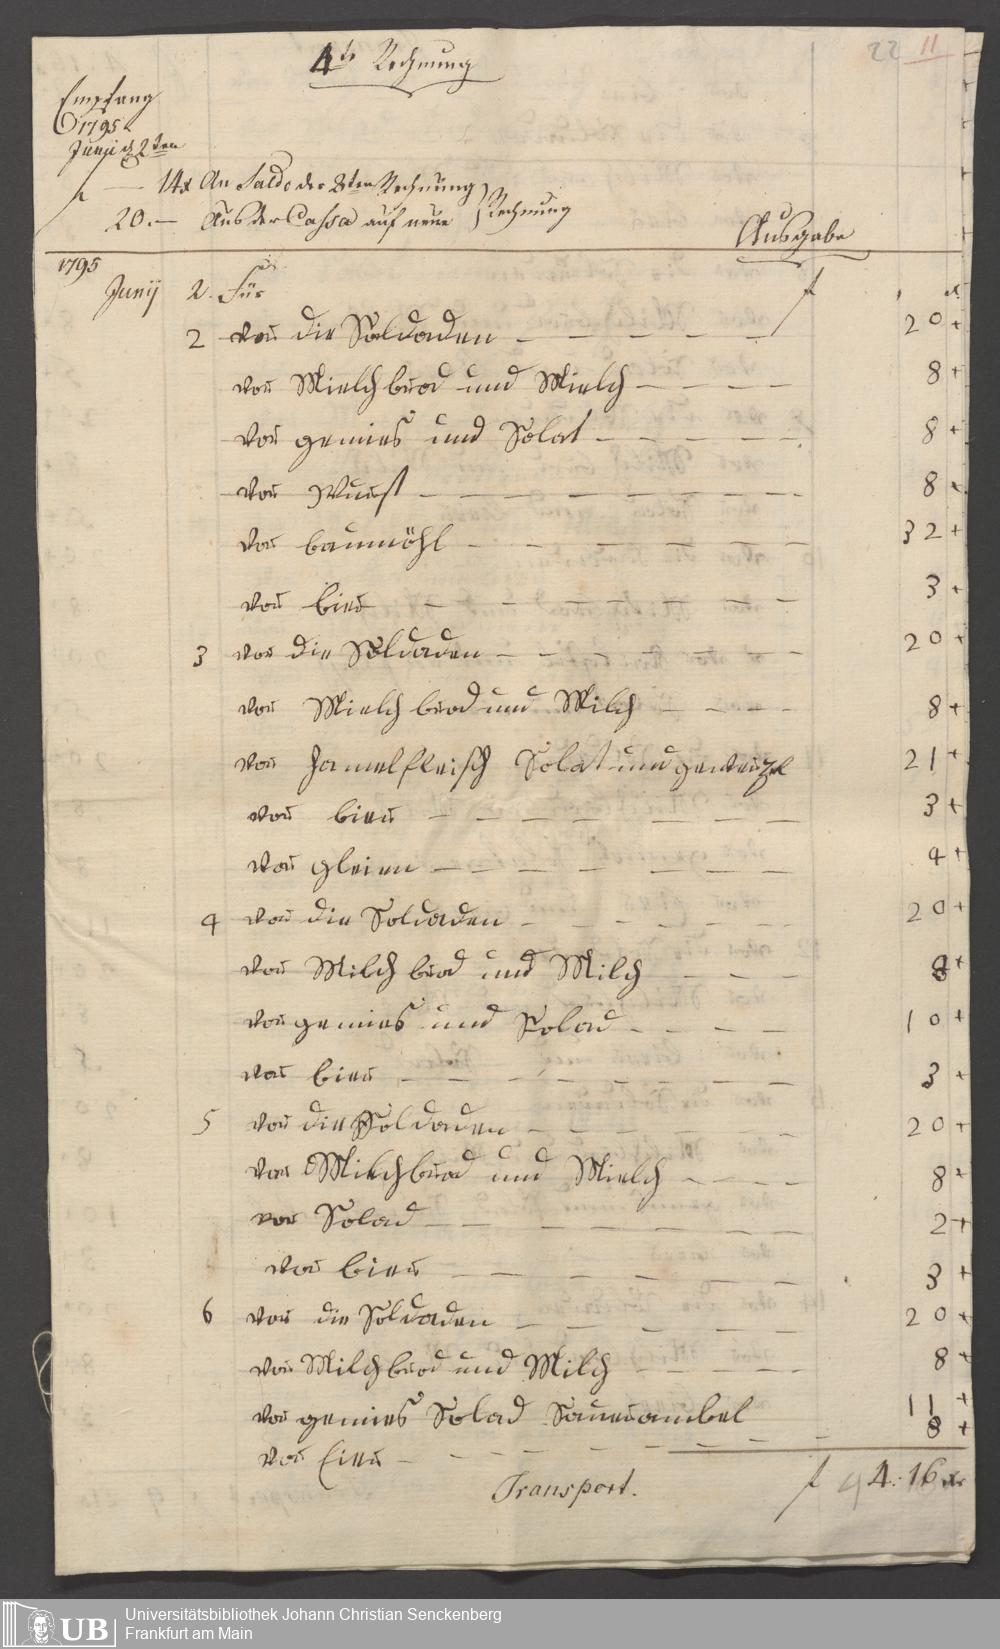 22 11
4te Rechnung
Empfang
1795
Junij d 2ten
f — 14 x An Saldo der 3ten Rechnung
20. — Aus der Cassa auf neue Rechnung
Ausgabe
1795
Junij 2. Für f x
2 vor die Soldaden — — — — — 20 +
vor Mielchbrod und Mielch — — — — 8 +
vor gemies und Solat — — — — — 8 +
vor Wurst — — — — — — — — 8 +
vor baumöhl — — — — — — 32 +
vor bier — — — — — — — — 3 +
3 vor die Soldaden — — — — — — 20 +
vor Mielchbrod und Milch — — — — 8 +
vor Hamelfleisch Solat und gewerzel 21 +
vor bier — — — — — — — 3 +
vor gleien — — — — — — — — 4 +
4 vor die Soldaden — — — — — 20 +
vor Milchbrod und Milch — — — 8 +
vor gemies und Solad — — — — 10 +
vor bier — — — — — — — — 3 +
5 vor die Soldaden — — — — — 20 +
vor Milchbrod und Mielch — — — — 8 +
vor Solad — — — — — — — 2 +
vor bier — — — — — — 3 +
6 vor die Soldaden — — — — 20 +
vor Milchbrod und Milch — — — — 8 +
vor gemies Solad Sauerambel 11 +
vor bier — — — — — — — — 8 +
Transport. f 4. 16 xr
UB
Universitätsbibliothek Johann Christian Senckenberg
Frankfurt am Main